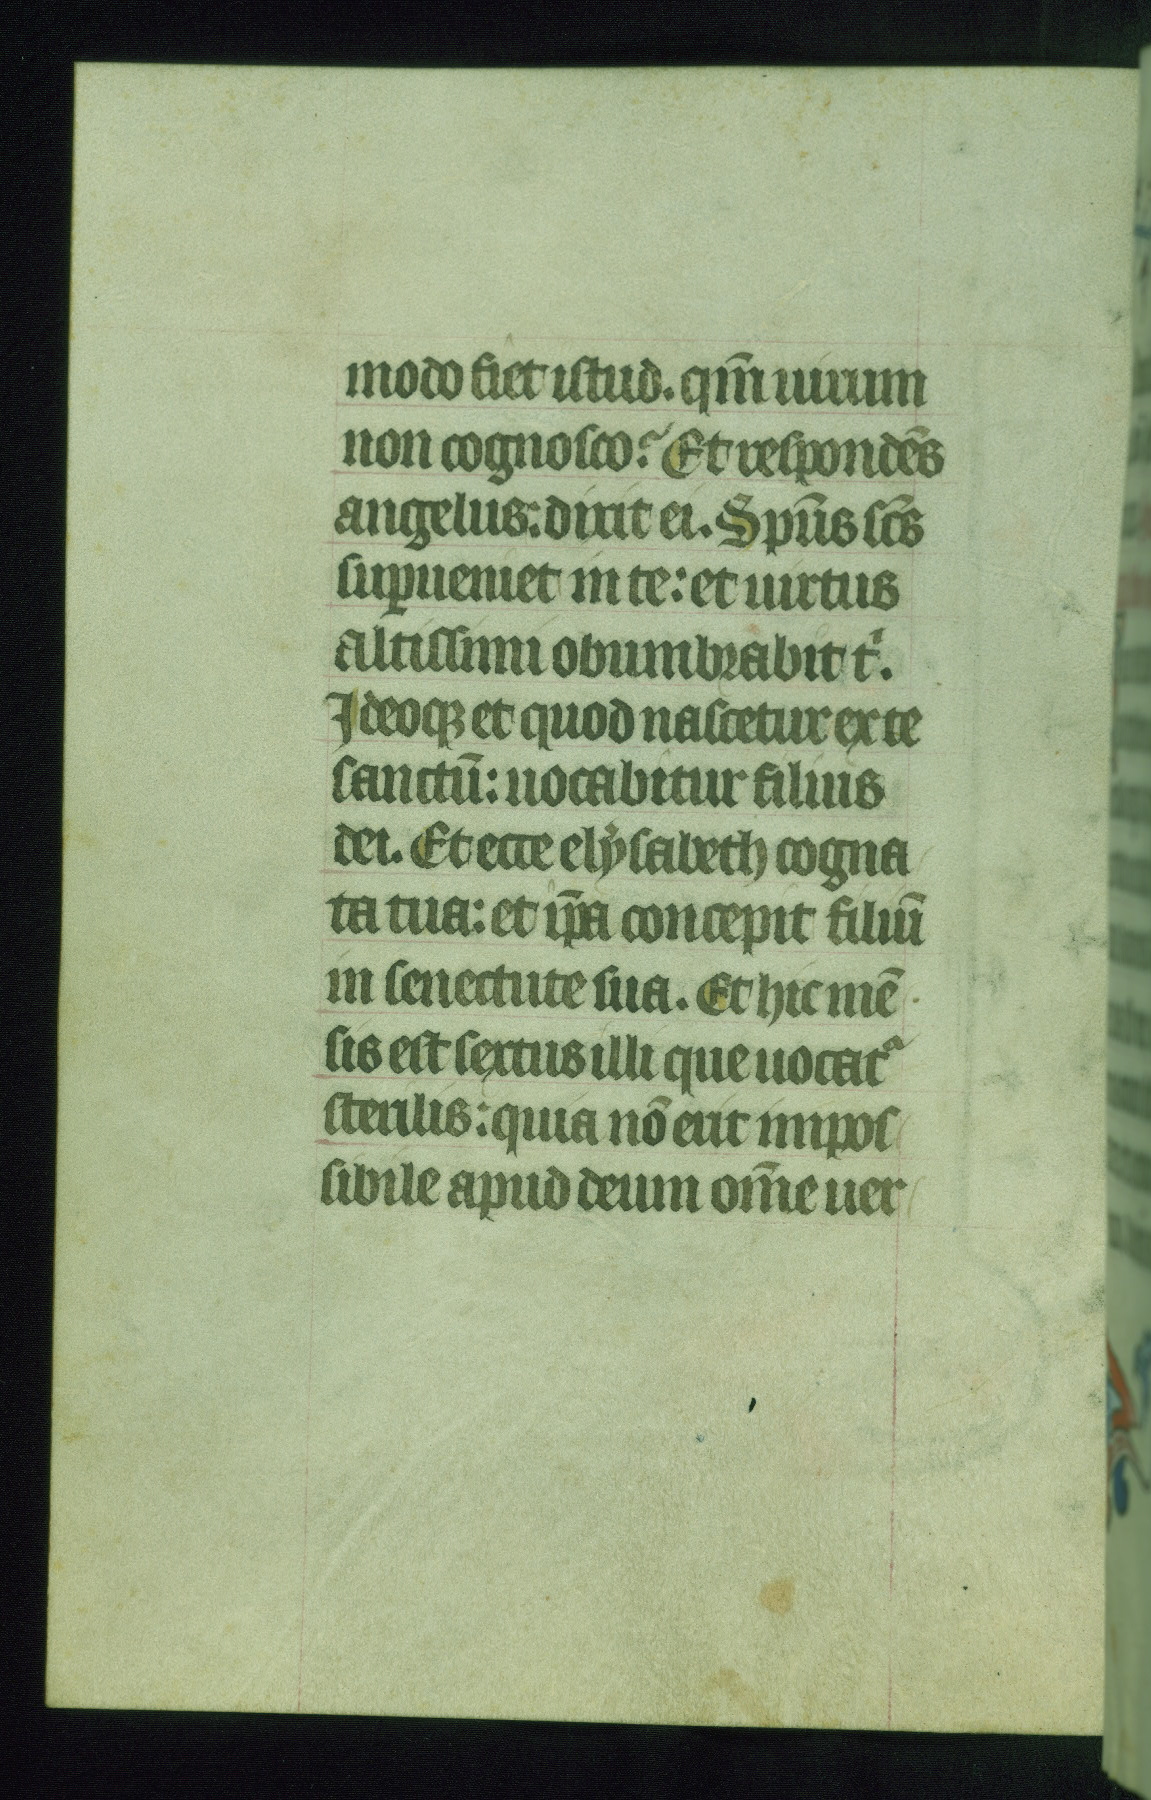 modo fiet istud. qm̄ uirum
non cognosco? Et respondēs
angelus: dixit ei. Sp̄us sc̄s
sup̱ueniet in te: et uirtus
altissimi obumbrabit tⁱ.
Ideoqꝫ et quod nascetur ex te
sanctū: uocabitur filius
dei. Et ecce elẏsabeth cogna
ta tua: et ip̄a concepit filiū
in senectute sua. Et hic mē
sis est sextus illi que uocatᷣ
sterilis: quia nō erit impos
sibile apud deum om̄e uer